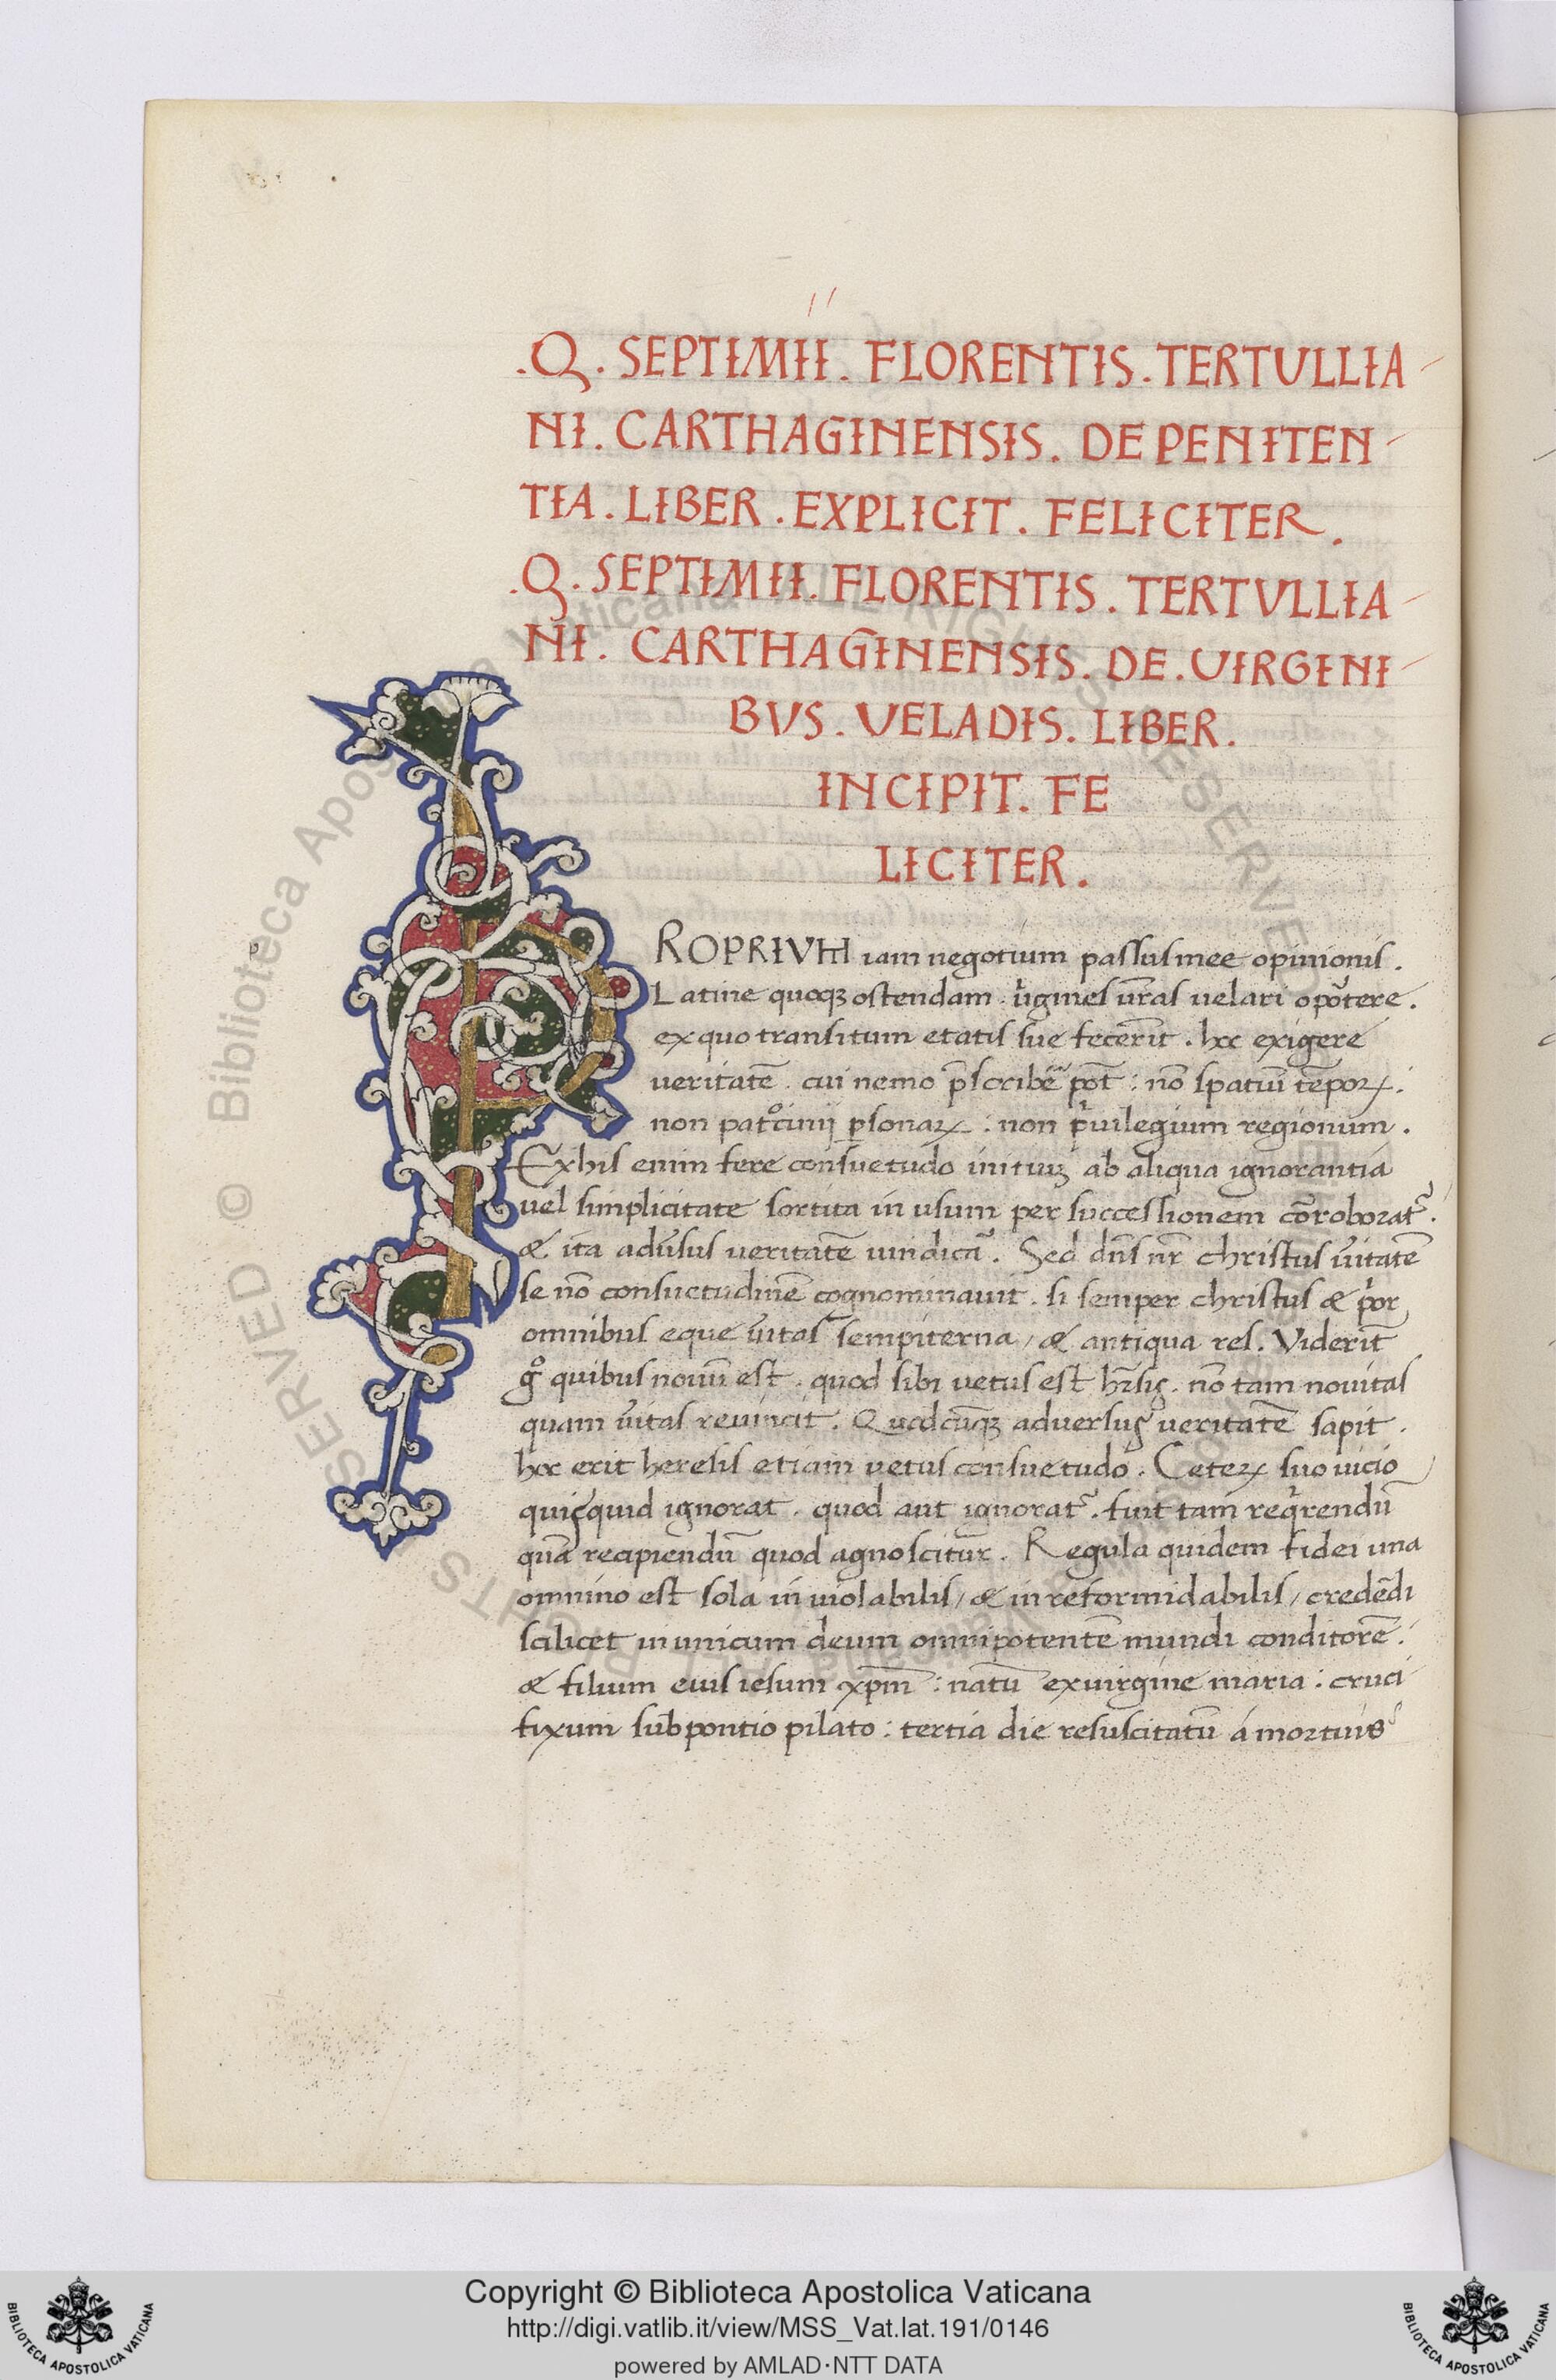 .Q. SEPTIMII. FLORENTIS. TERTULLIA
NI. CARTHAGINENSIS. DE PENITEN
TIA. LIBER. EXPLICIT. FELICITER.
.Q. SEPTIMII. FLORENTIS. TERTVLLIA
NI. CARTHAGINENSIS. DE. UIRGINI
BVS. UELADIS. LIBER.
INCIPIT. FE
LICITER.
PROPRIVM iam negotium passus mee opinionis.
Latine quoqꝫ ostendam. ỹgines ur̃as uelari oportere.
ex quo transitum etatis sue fecer̃it. hoc exigere
ueritatẽ. cui nemo p̃scriber̃ pot̃: nõ spatiũ tẽpoꝝ:
non patͦcinij ꝑsonaꝝ: non pͥuilegium regionum.
Ex his enim fere consuetudo initiuꝫ ab aliqua ignorantia
uel simplicitate sortita in usum per successionem cõroborat᷑.
& ita aduersus ueritatẽ uindicat᷑. Sed dñs nr̃ christus ũitatẽ
se nõ consuetudinẽ cognominauit. si semper christus & pͥor
omnibus eque ũitas sempiterna, & antiqua res. Viderĩt
gͦ quibus nouũ est. quod sibi uetus est hr̃sis. nõ tam nouitas
quam ũitas reuincit. Quodcũqꝫ aduersus ueritatẽ sapit.
hoc erit heresis etiam uetus consuetudo. Ceteꝝ suo uicio
quisquid ignorat. quod aut ignorat᷑. fuit tam reqͥrendũ
quã recipiendũ quod agnoscitur. Regula quidem fidei una
omnino est sola inuiolabilis, & inreformidabilis, credẽdi
scilicet in unicum deum omnipotentẽ mundi conditorẽ:
& filium eius iesum xp̃m: natũ ex uirgine maria: cruci
fixum sub pontio pilato: tertia die resuscitatũ á mortuis
Biblioteca Apostolica Vaticana
ALL RIGHTS RESERVED ©
Copyright © Biblioteca Apostolica Vaticana
http://digi.vatlib.it/view/MSS_Vat.lat.191/0146
powered by AMLAD·NTT DATA
BIBLIOTECA APOSTOLICA VATICANA
BIBLIOTECA APOSTOLICA VATICANA